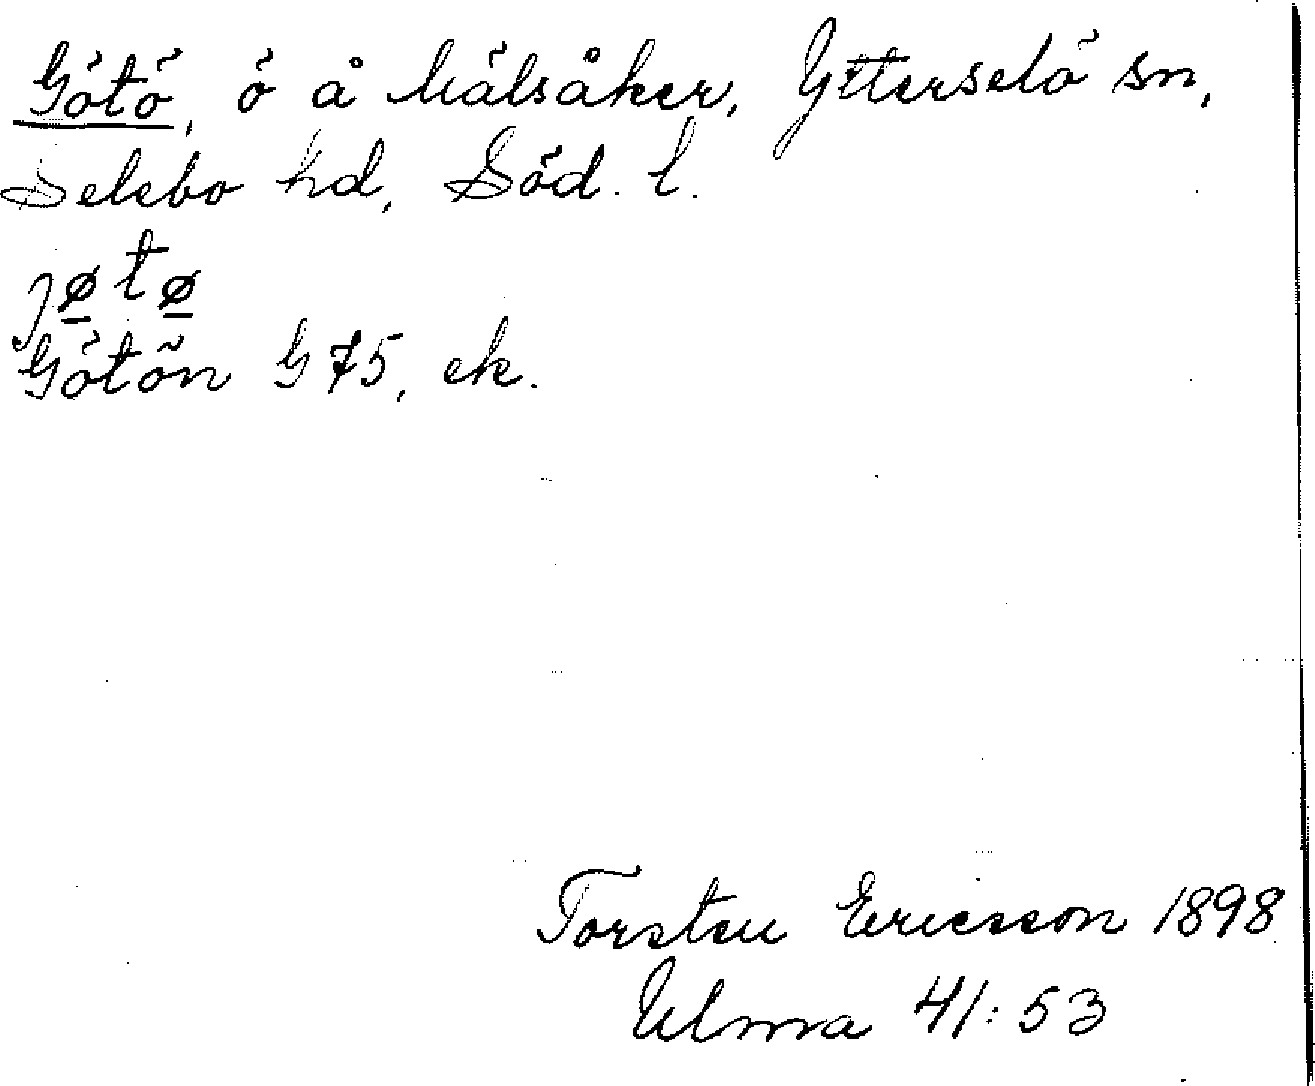 Götö, ö å Mälsåker, Ytterselö sn,
Selebo hd, Söd. l.
jøtø
Götön G 75, ek.
Torsten Ericsson 1898
Ulma 41:53